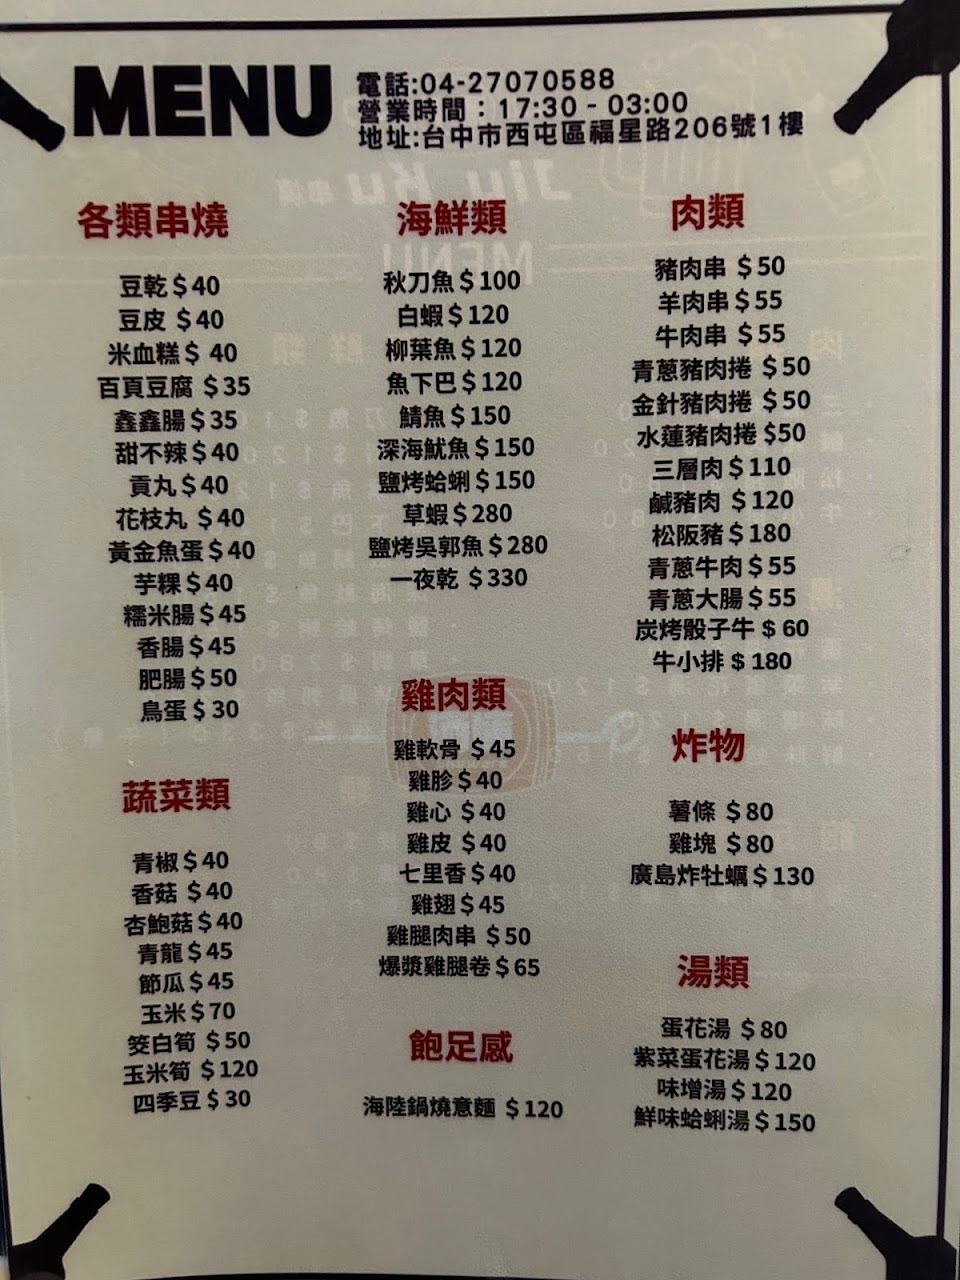 MENU
電話:04-27070588
營業時間：17:30 - 03:00
地址:台中市西屯區福星路206號1樓
各類串燒
豆乾＄40
豆皮 ＄40
米血糕＄ 40
百頁豆腐 ＄35
鑫鑫腸＄35
甜不辣＄40
貢丸＄40
花枝丸 ＄40
黃金魚蛋＄40
芋粿＄40
糯米腸＄45
香腸＄45
肥腸＄50
鳥蛋＄30
蔬菜類
青椒＄40
香菇 ＄40
杏鮑菇＄40
青龍＄45
節瓜＄45
玉米＄70
筊白筍 ＄50
玉米筍 ＄120
四季豆＄30
海鮮類
秋刀魚＄100
白蝦＄120
柳葉魚＄120
魚下巴＄120
鯖魚＄150
深海魷魚＄150
鹽烤蛤蜊＄150
草蝦＄280
鹽烤吳郭魚＄280
一夜乾 ＄330
雞肉類
雞軟骨 ＄45
雞胗＄40
雞心 ＄40
雞皮 ＄40
七里香＄40
雞翅＄45
雞腿肉串 ＄50
爆漿雞腿卷＄65
飽足感
海陸鍋燒意麵 ＄120
肉類
豬肉串 ＄50
羊肉串＄55
牛肉串 ＄55
青蔥豬肉捲 ＄50
金針豬肉捲 ＄50
水蓮豬肉捲 $50
三層肉＄110
鹹豬肉 ＄120
松阪豬＄180
青蔥牛肉＄55
青蔥大腸＄55
炭烤骰子牛 $ 60
牛小排 $ 180
炸物
薯條 ＄80
雞塊 ＄80
廣島炸牡蠣＄130
湯類
蛋花湯 ＄80
紫菜蛋花湯＄120
味增湯＄120
鮮味蛤蜊湯＄150